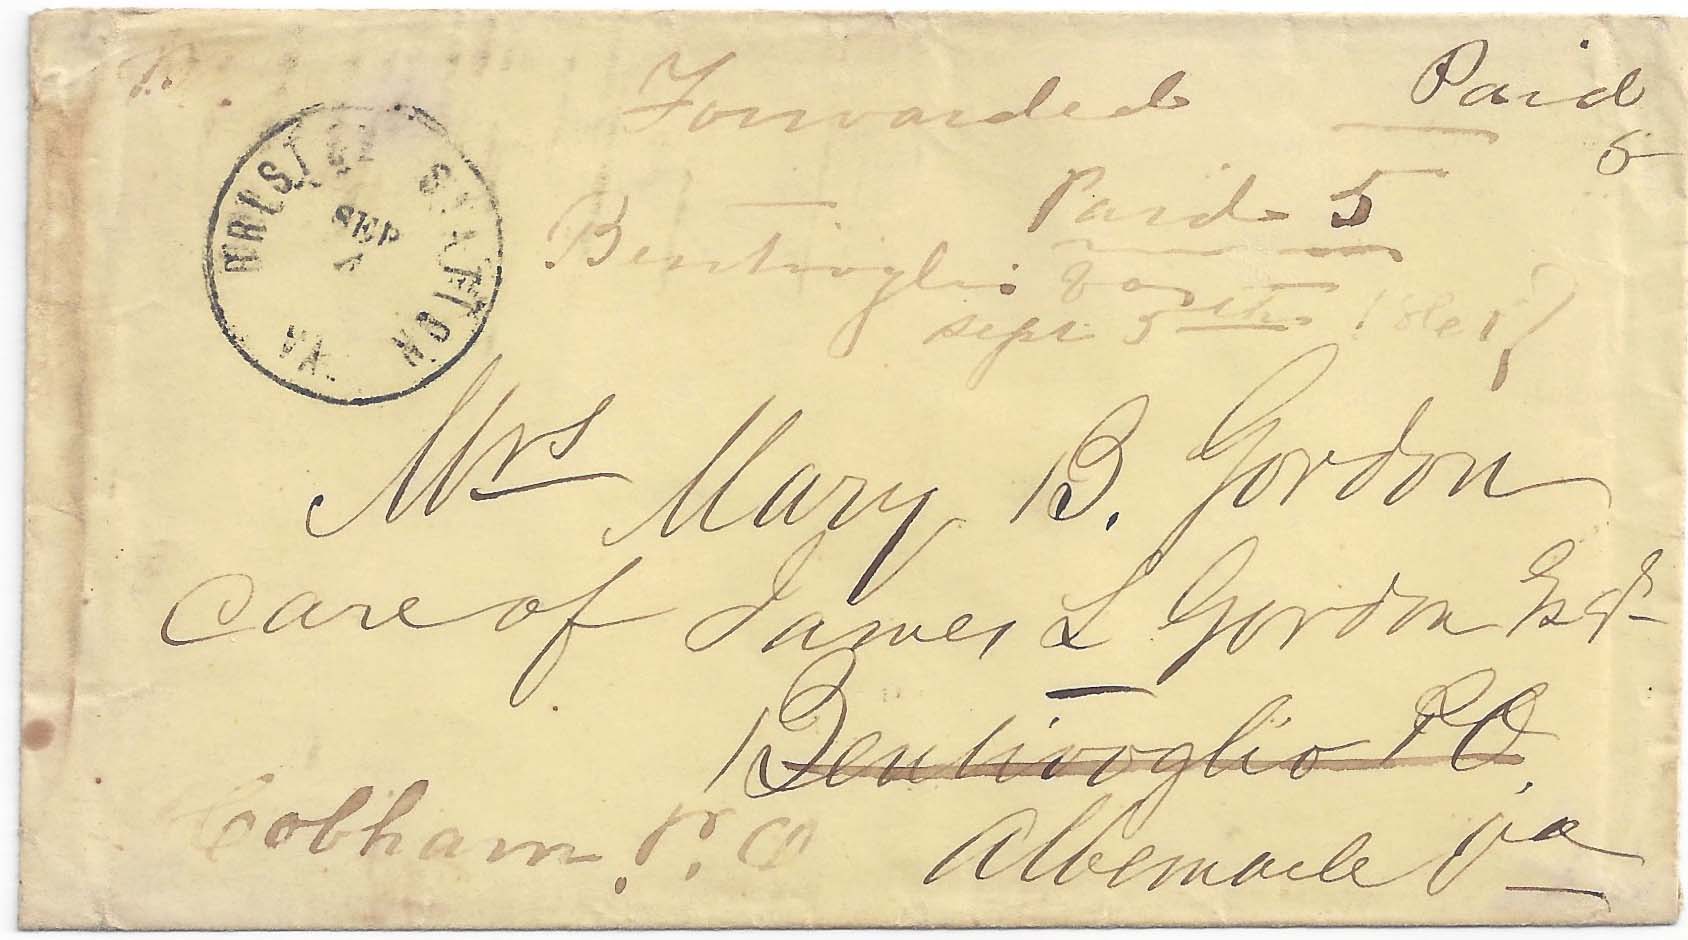 Forwarded Paid
5
Paid 5
Bentivoglio Va
Sept 5th 1861
STATION
SEP
VA
Mrs Mary B. Gordon
Care of James L Gordon Esqr
Bentivoglio P.O.
Cobham P.O
Albemarle Va